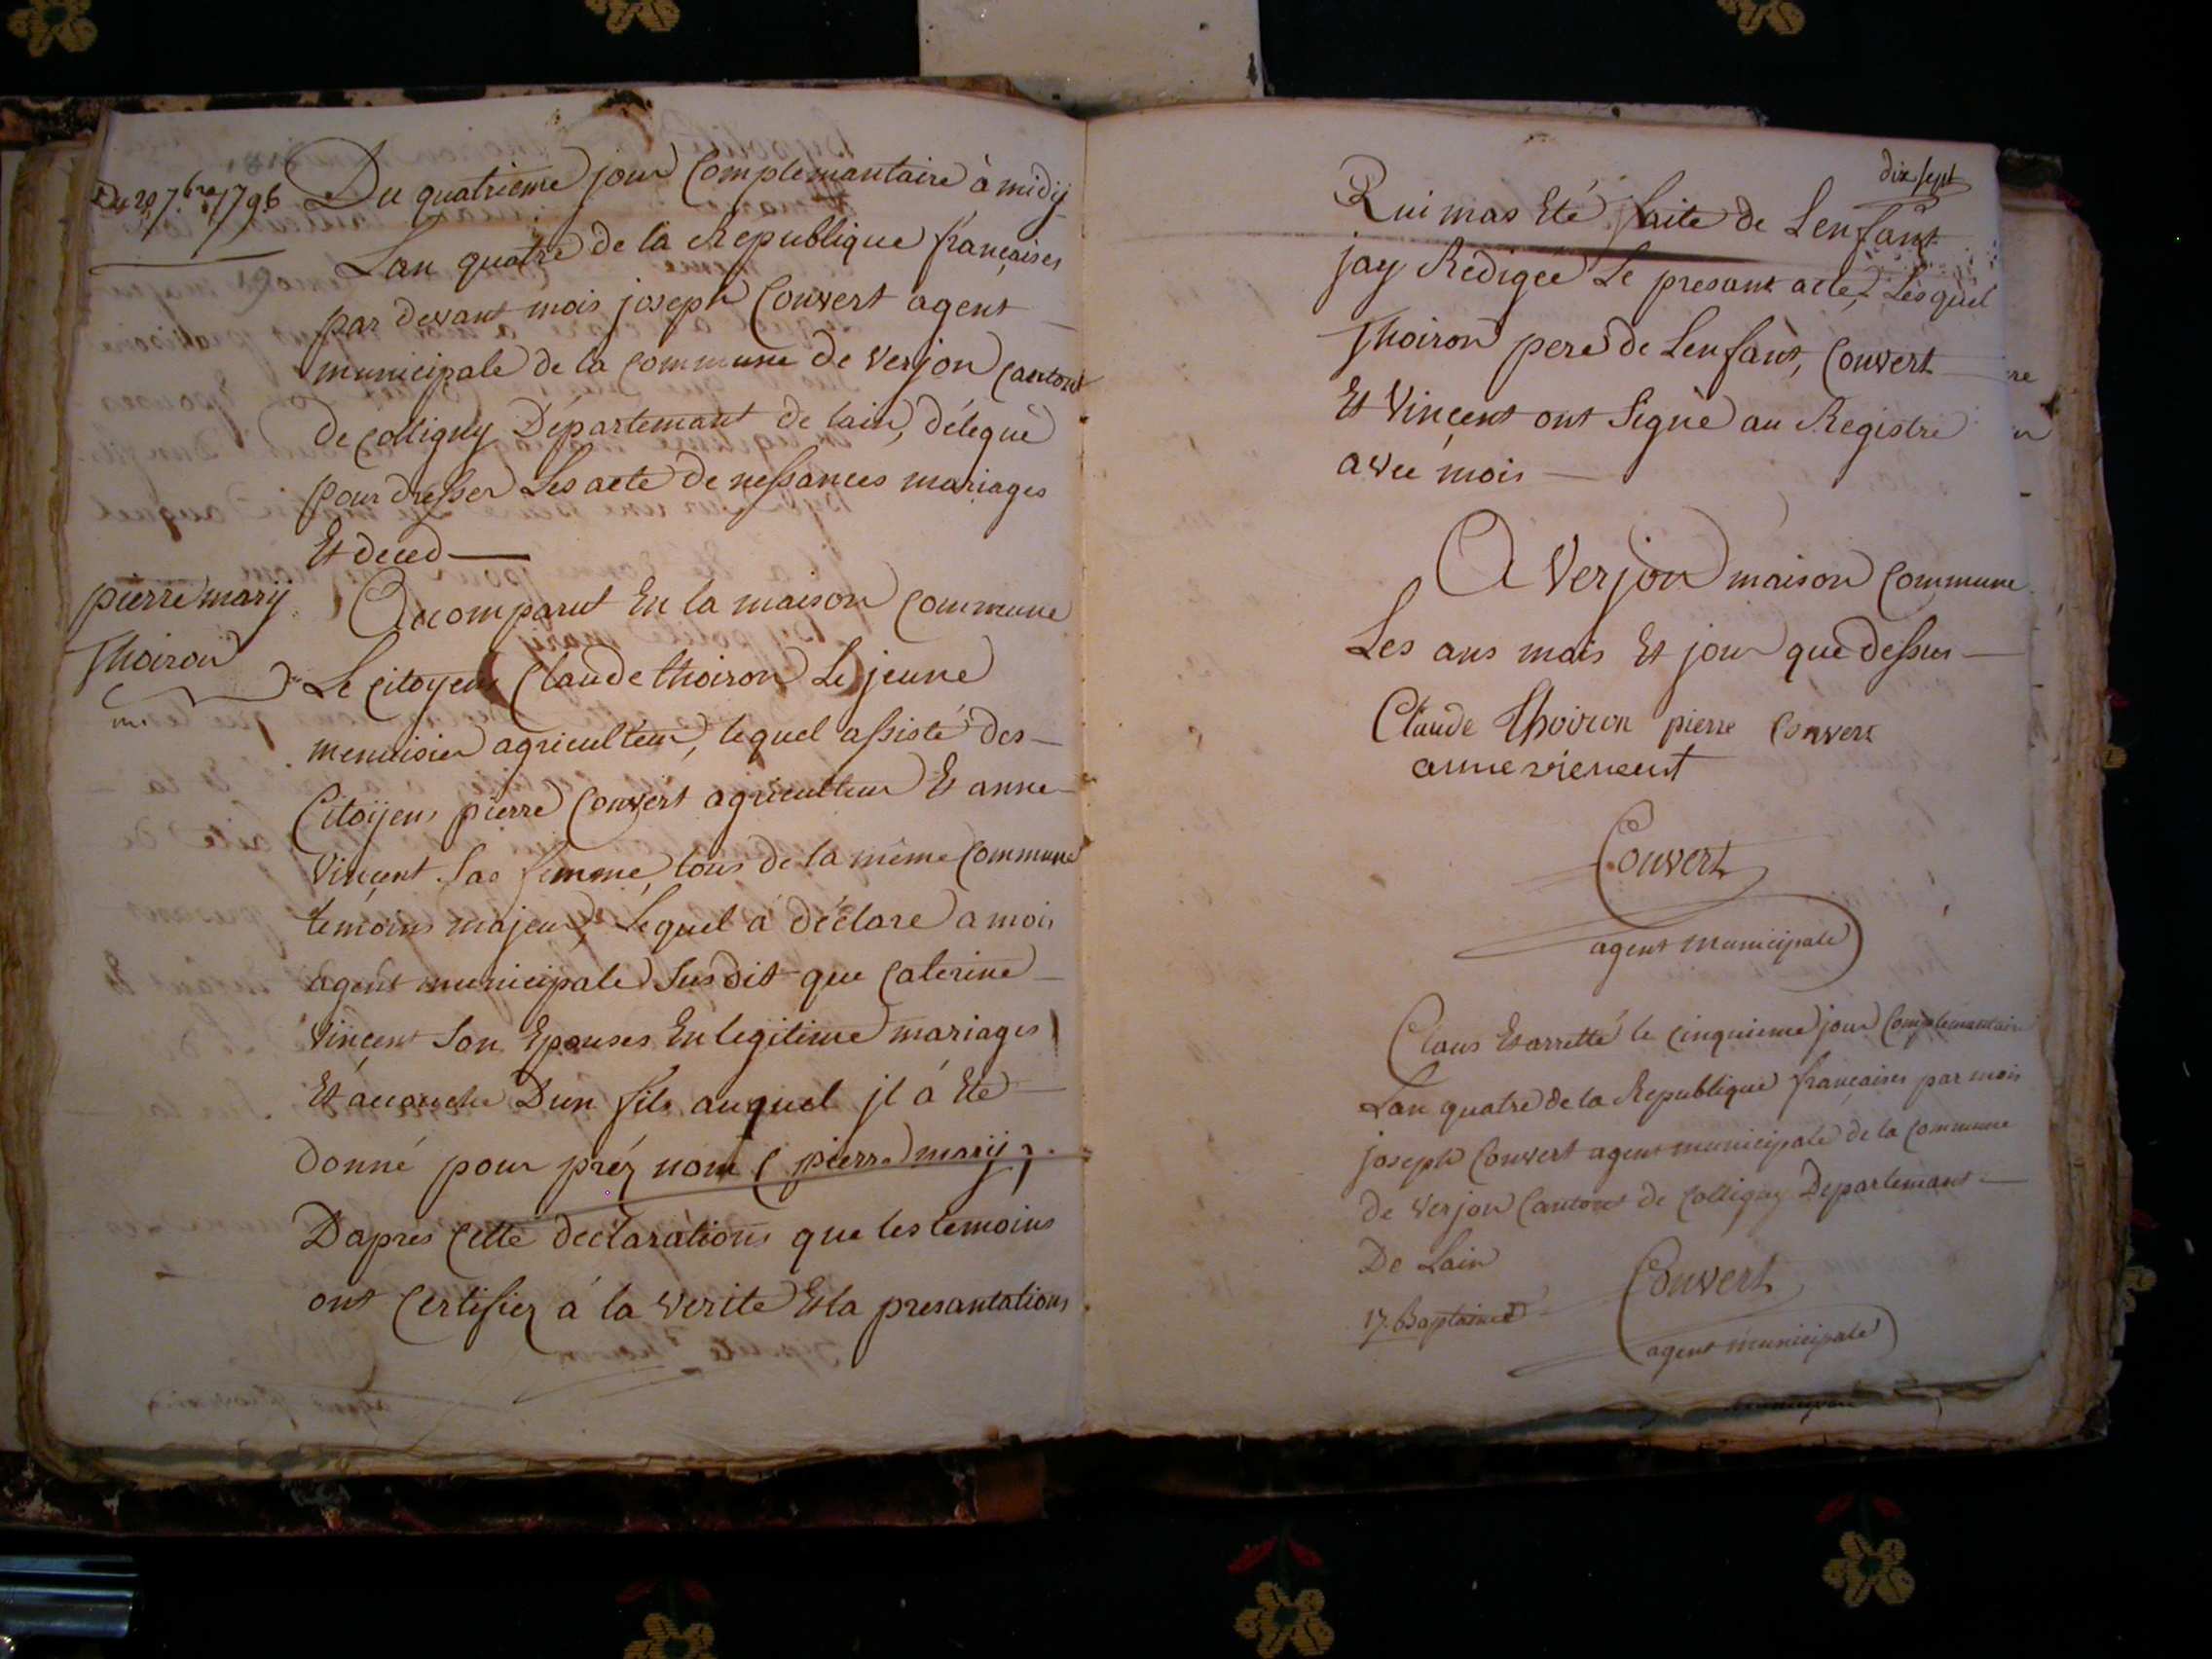 Du 20 7bre 1796
Du quatrieme jour Complemantaire à midÿ
Lan quatre de la Republique françaises
par devant mois joseph Convert agent
municipale de la commune de verjon Canton
de colligny Département de lain, délegué
pour dresser Les acte de nessances mariages
Et deced
pierre marÿ
Thoiron
Acomparut En la maison Commune
Le citoyen Claude thoiron Le jeune
menuisier agriculteur, lequel assisté des
Citoÿens pierre Convert agriculteur Et anne
Vincent Sae femme, tous de la même Commune
temoins majeur, Lequel à déclare a mois
agent municipale Susdit que Caterine
Vincent Son Epouses En legitime mariages
Et acouche Dun fils auquel jl à Ete
donné pour préz nom ( pierre marÿ ;
Dapres Cette declarations que les temoins
ont Certifiez à la verite Et la presantations
dix sept
Qui mas Eté faite de Lenfant
jay Redigee Le presant acte, Lesquel
Thoiron pere de Lenfant, Convert
Et Vincent ont Signé au Registre
avec mois
A Verjon maison Commune
Les ans mois Et jour que dessus
Claude thoiron pierre Convert
anne vicncent
Convert
agent municipale
Claus Et arretté le Cinquieme jour Complemantaire
Lan quatre de la Republique françaises par mois
joseph Convert agent municipale de la Commune
de Verjon Canton de Colligny Departemant
De Lain
17. Baptaimes
Convert
agent municipale